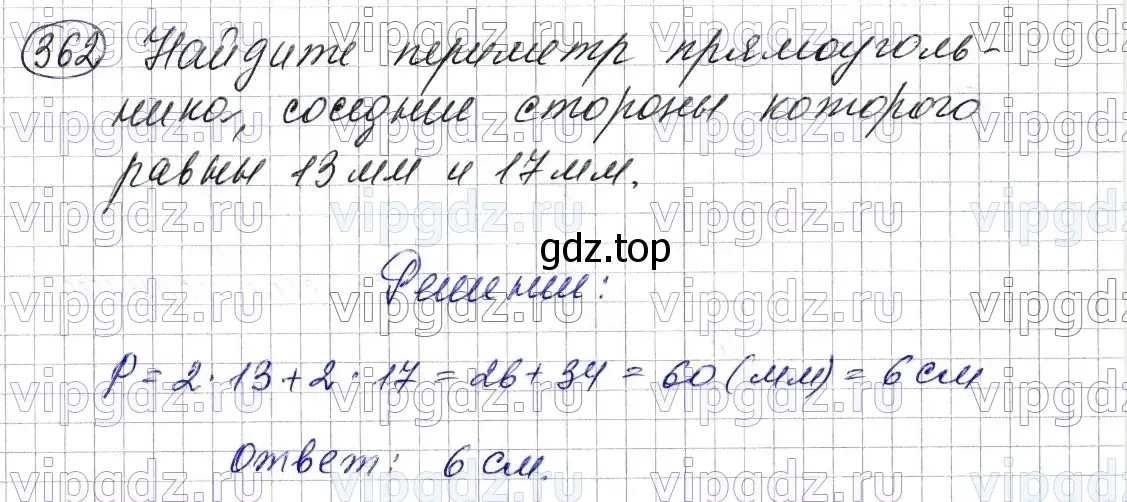 362 Найдите периметр прямоуголь-
ника, соседние стороны которого
равны 13 мм и 17 мм.
gdz.top
Решение:
P = 2 · 13 + 2 · 17 = 26 + 34 = 60 (мм) = 6 см
ответ: 6 см.
vipgdz.ru